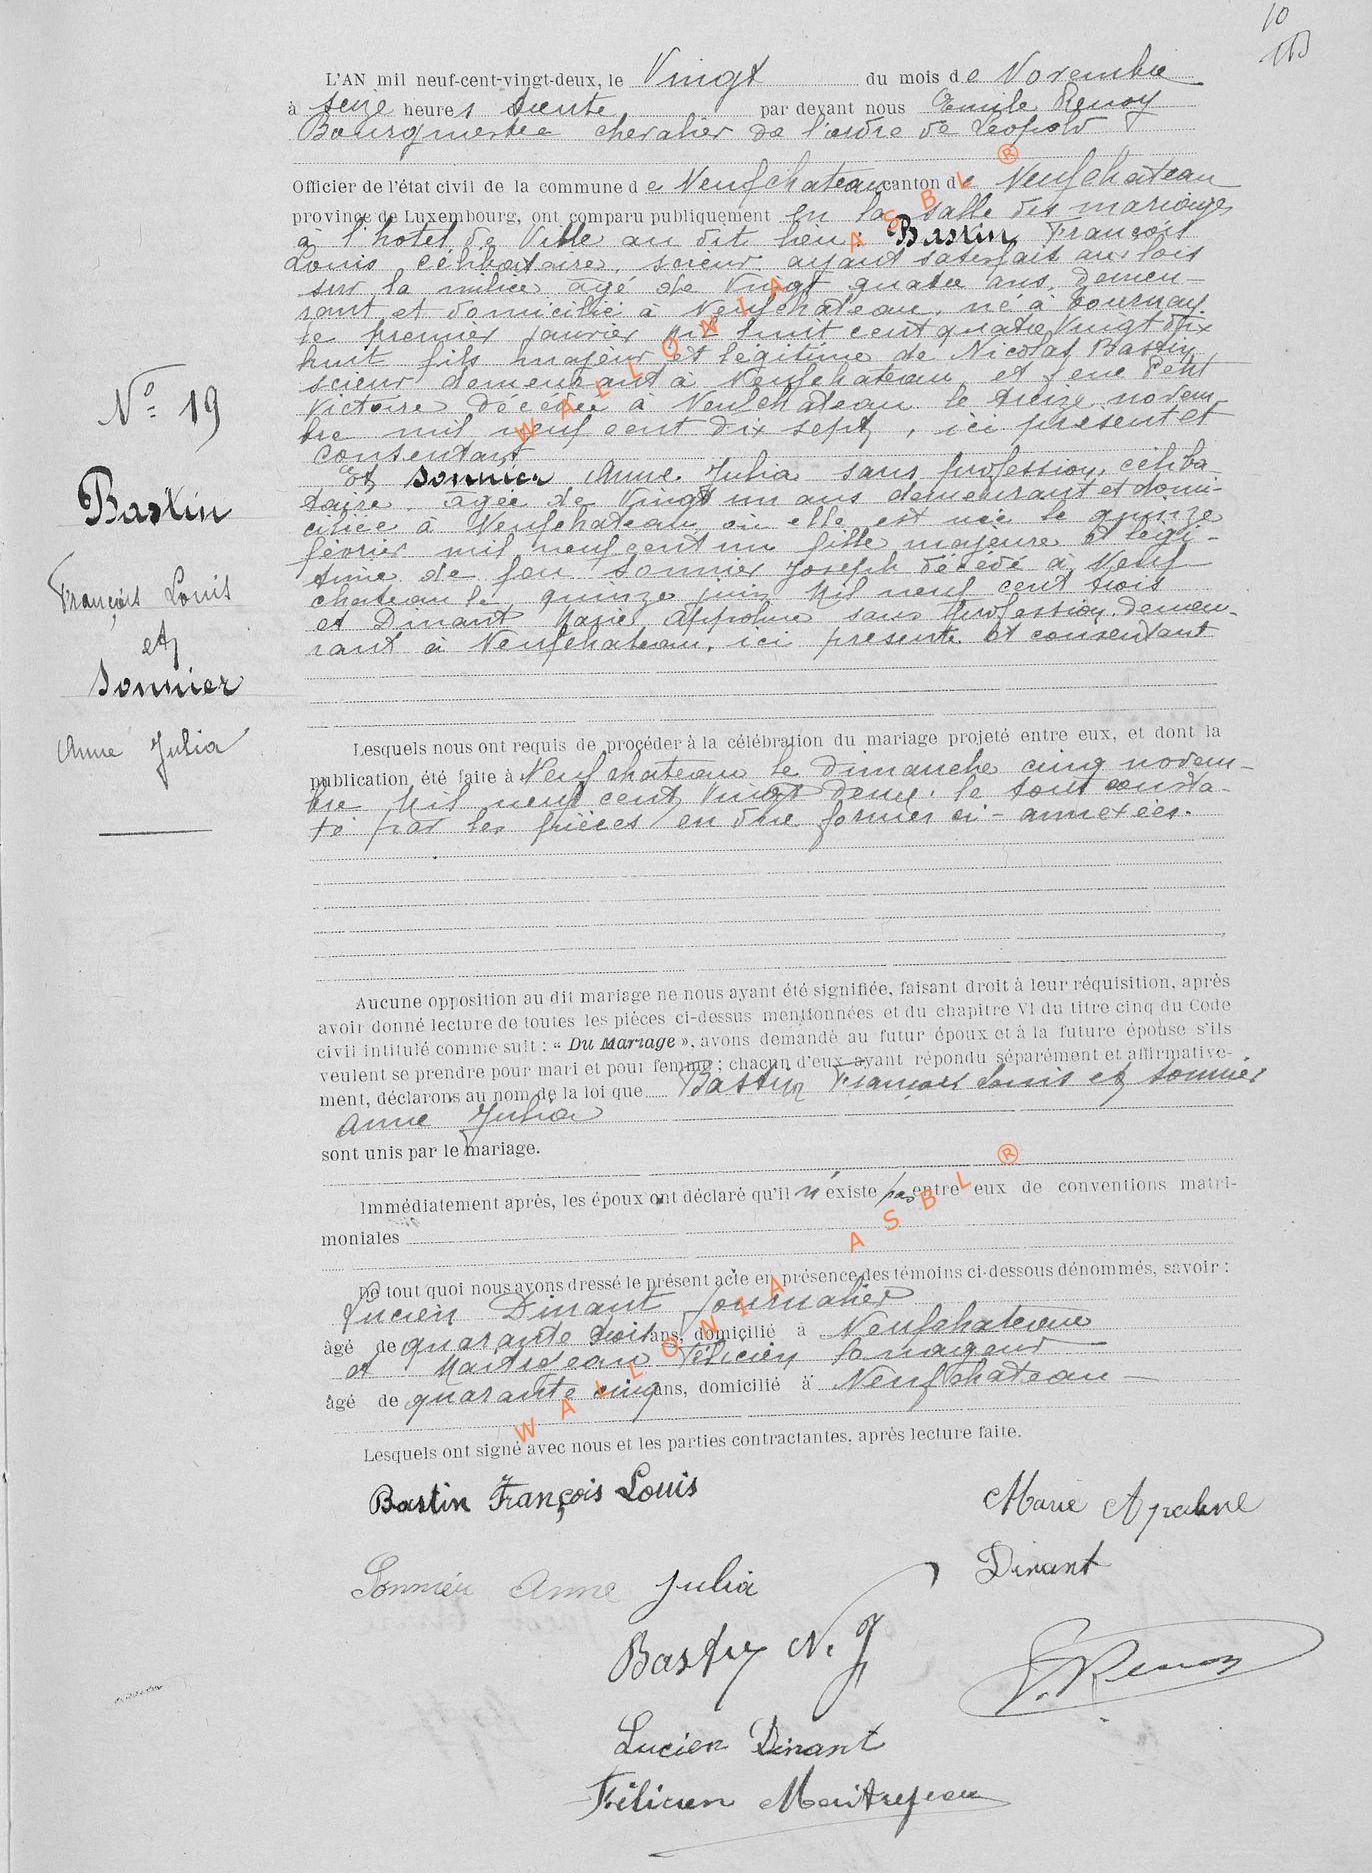 10
L'AN mil neuf-cent-vingt-deux, le Vingt du mois de Novembre
à seize heures trente par devant nous Emile Renoy
Bourgmestre chevalier de l'ordre de Léopold
Officier de l'état civil de la commune de Neufchateau canton de Neufchâteau
province de Luxembourg, ont comparu publiquement en la salle des mariages
à l'hotel de Ville au dit lieu : Bastin François
Louis célibataire, scieur ayant satisfait aux lois
sur la milice âgé de Vingt quatre ans, demeu-
rant et domicilié à Neufchateau, né à Tournay
le premier janvier mil huit cent quatre vingt dix
huit fils majeur et légitime de Nicolas Bastin
scieur demeurant à Neufchateau et feue Petit
Victoire décédée à Neufchateau le treize novem-
bre mil neuf cent dix sept, ici présent et
consentant
Et Sonnier Anne Julia sans profession, céliba-
taire, âgée de Vingt un ans demeurant et domi-
ciliée à Neufchateau où elle est née le quinze
février mil neuf cent un fille majeure et légi-
time de feu Sonnier Joseph décédé à Neuf-
chateau le quinze juin Mil neuf cent trois
et Dinant Marie Appoline sans profession demeu-
rant à Neufchateau, ici présente et consentant
N° 19
Bastin
François Louis
et
Sonnier
Anne Julia
Lesquels nous ont requis de procéder à la célébration du mariage projeté entre eux, et dont la
publication été faite à Neufchateau le dimanche cinq novem-
bre Mil neuf cent Vingt deux. le tout consta-
té par les pièces en due former ci-annexées.
Aucune opposition au dit mariage ne nous ayant été signifiée, faisant droit à leur réquisition, après
avoir donné lecture de toutes les pièces ci-dessus mentionnées et du chapitre VI du titre cinq du Code
civil intitulé comme suit : « Du Mariage », avons demandé au futur époux et à la future épouse s'ils
veulent se prendre pour mari et pour femme ; chacun d'eux ayant répondu séparément et affirmative-
ment, déclarons au nom de la loi que Bastin François Louis et Sonnier
Anne Julia
sont unis par le mariage.
Immédiatement après, les époux ont déclaré qu'il n'existe pas entre eux de conventions matri-
moniales
De tout quoi nous avons dressé le présent acte en présence des témoins ci-dessous dénommés, savoir :
Lucien Dinant journalier
âgé de quarante trois ans, domicilié à Neufchateau
et Maitrejean Félicien
âgé de quarante cinq ans, domicilié à Neufchateau
Lesquels ont signé avec nous et les parties contractantes, après lecture faite.
Bastin François Louis
Marie Apoline
Dinant
Sonnier Anne Julia
Bastin N. J
E. Renoy
Lucien Dinant
Félicien Maitrejean
WALLONIA ASBL ®
WALLONIA ASBL ®